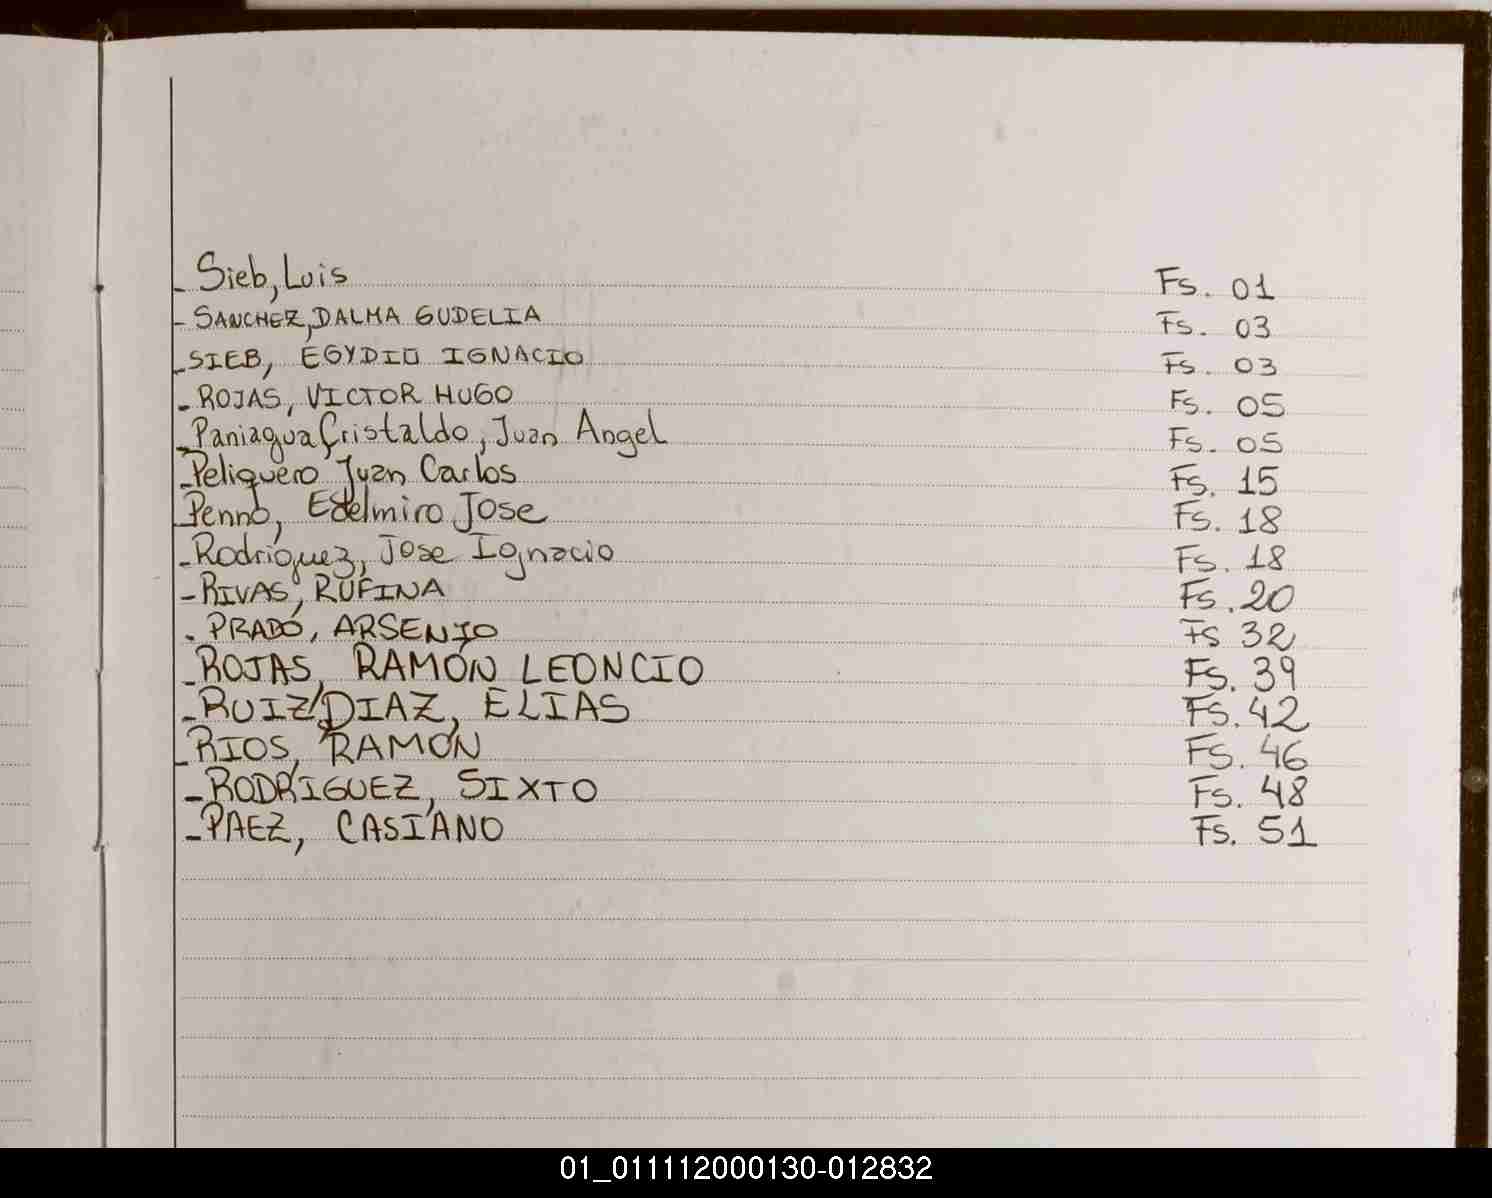 - Sieb, Luis Fs. 01
- SANCHEZ, DALMA GUDELIA Fs. 03
- SIEB, EGYDIO IGNACIO Fs. 03
- ROJAS, VICTOR HUGO Fs. 05
- Paniagua Cristaldo, Juan Angel Fs. 05
- Peliquero Juan Carlos Fs. 15
Penno, Edelmiro Jose Fs. 18
- Rodriguez, Jose Ignacio Fs. 18
- RIVAS, RUFINA Fs. 20
- PRADO, ARSENIO Fs 32
- ROJAS, RAMÓN LEONCIO Fs. 39
- RUIZ DIAZ, ELIAS Fs. 42
- RIOS, RAMÓN Fs. 46
- RODRÍGUEZ, SIXTO Fs. 48
- PAEZ, CASIANO Fs. 51
01_011112000130-012832